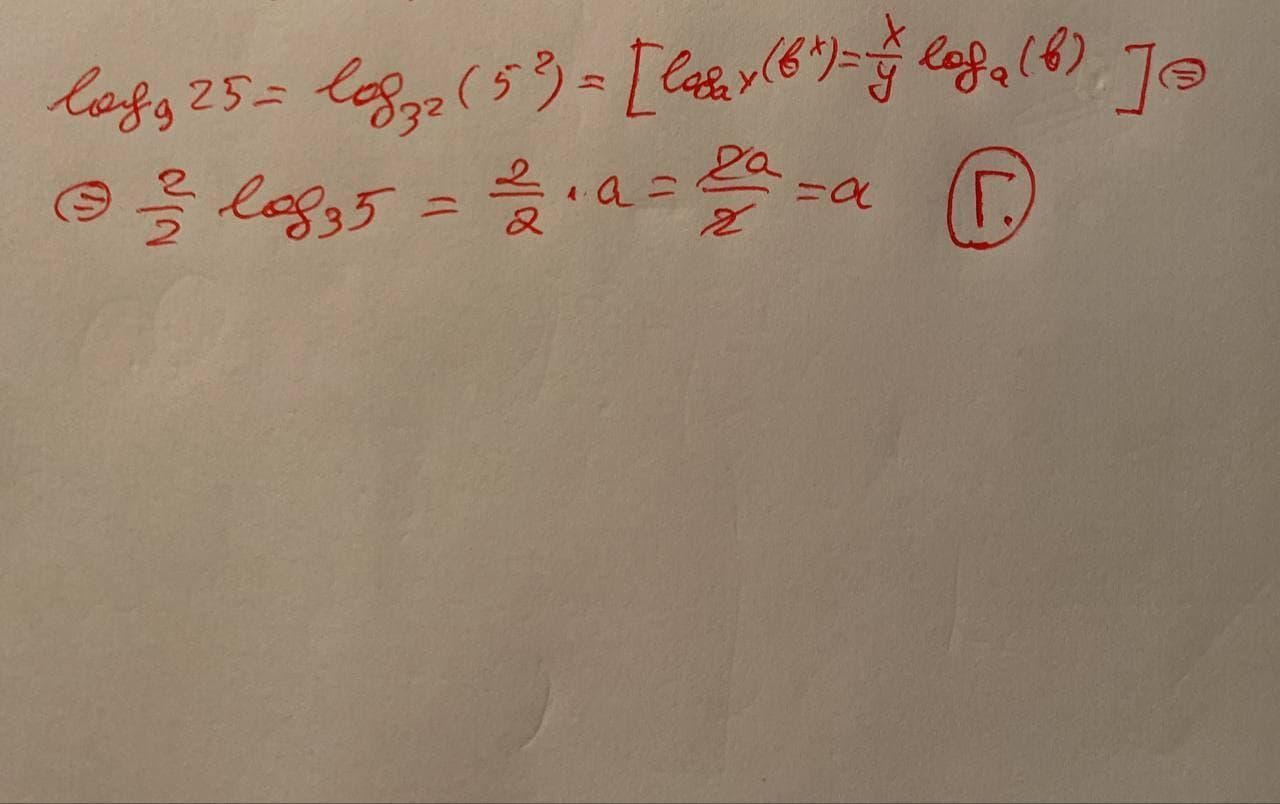 log₉ 25 = log₃² (5²) = [ logₐx (bˣ) = x/y logₐ (b) ] ⊜
⊜ 2/2 log₃ 5 = 2/2 · a = 2a/2 = a Г.